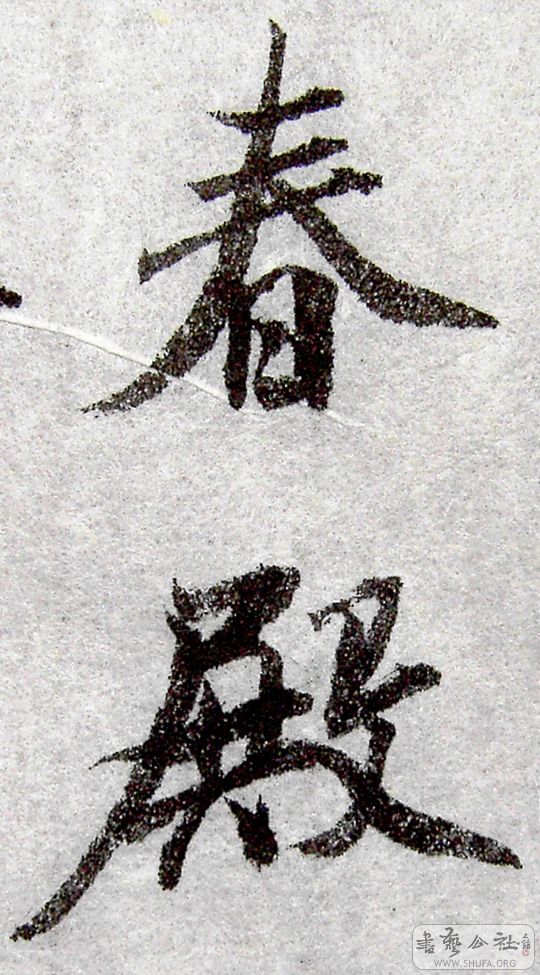 春
殿
書藝公社
WWW.SHUFA.ORG